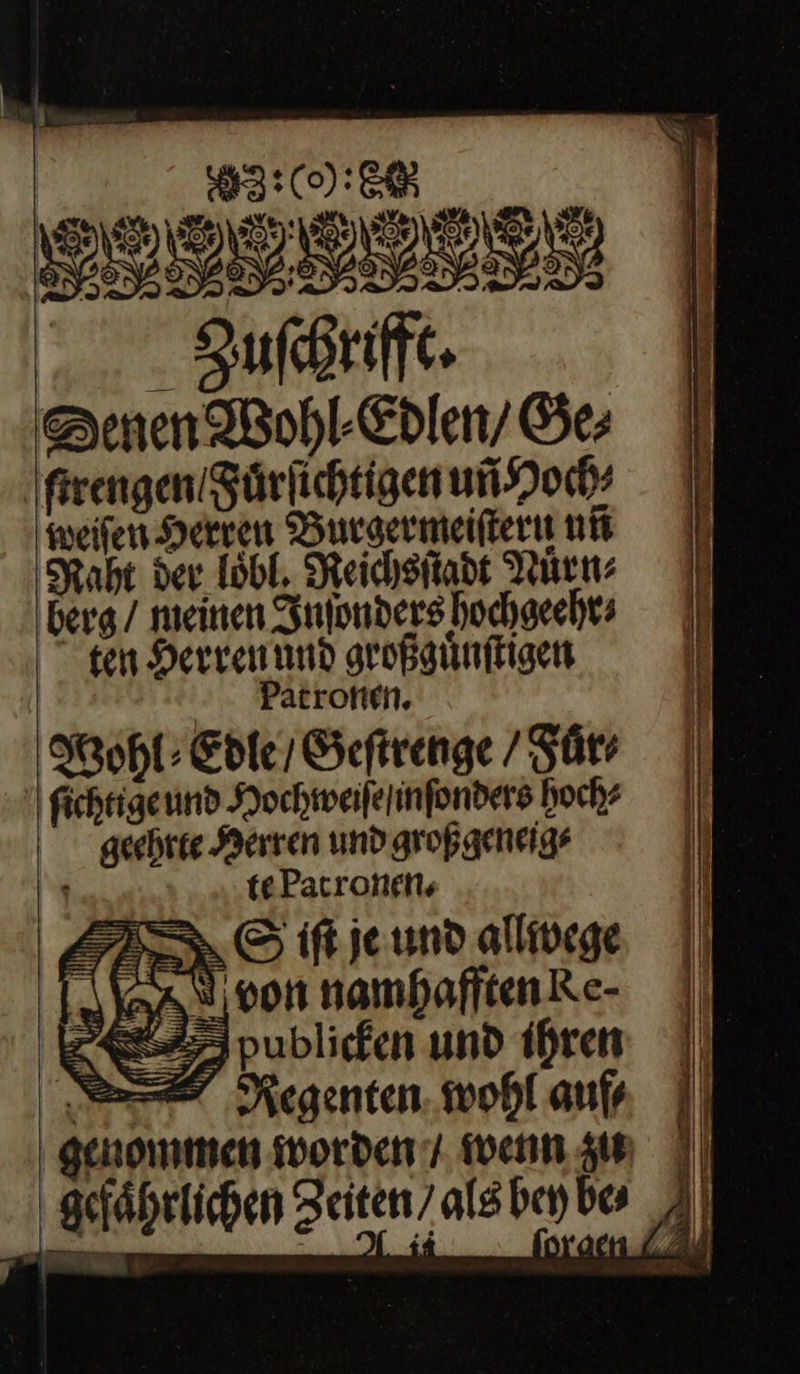 :(o):
Zuſchrifft.
Denen Wohl-Edlen/ Ge⸗
ſtrengen/Fuͤrſichtigen uñ Hoch⸗
weiſen Herren Burgermeiſtern uñ
Raht der loͤbl. Reichsſtadt Nuͤrn⸗
berg / meinen Inſonders hochgeehr⸗
ten Herren und großguͤnſtigen
Patronen.
Wohl⸗Edle / Geſtrenge / Fuͤr⸗
ſichtige und Hochweiſe/inſonders hoch⸗
geehrte Herren und großgeneig⸗
te Patronen.
ES iſt je und allwege
von namhafften Re-
publicken und ihren
Regenten wohl auf⸗
genommen worden / wenn zu
gefaͤhrlichen Zeiten / als bey be⸗
A ij ſorgen